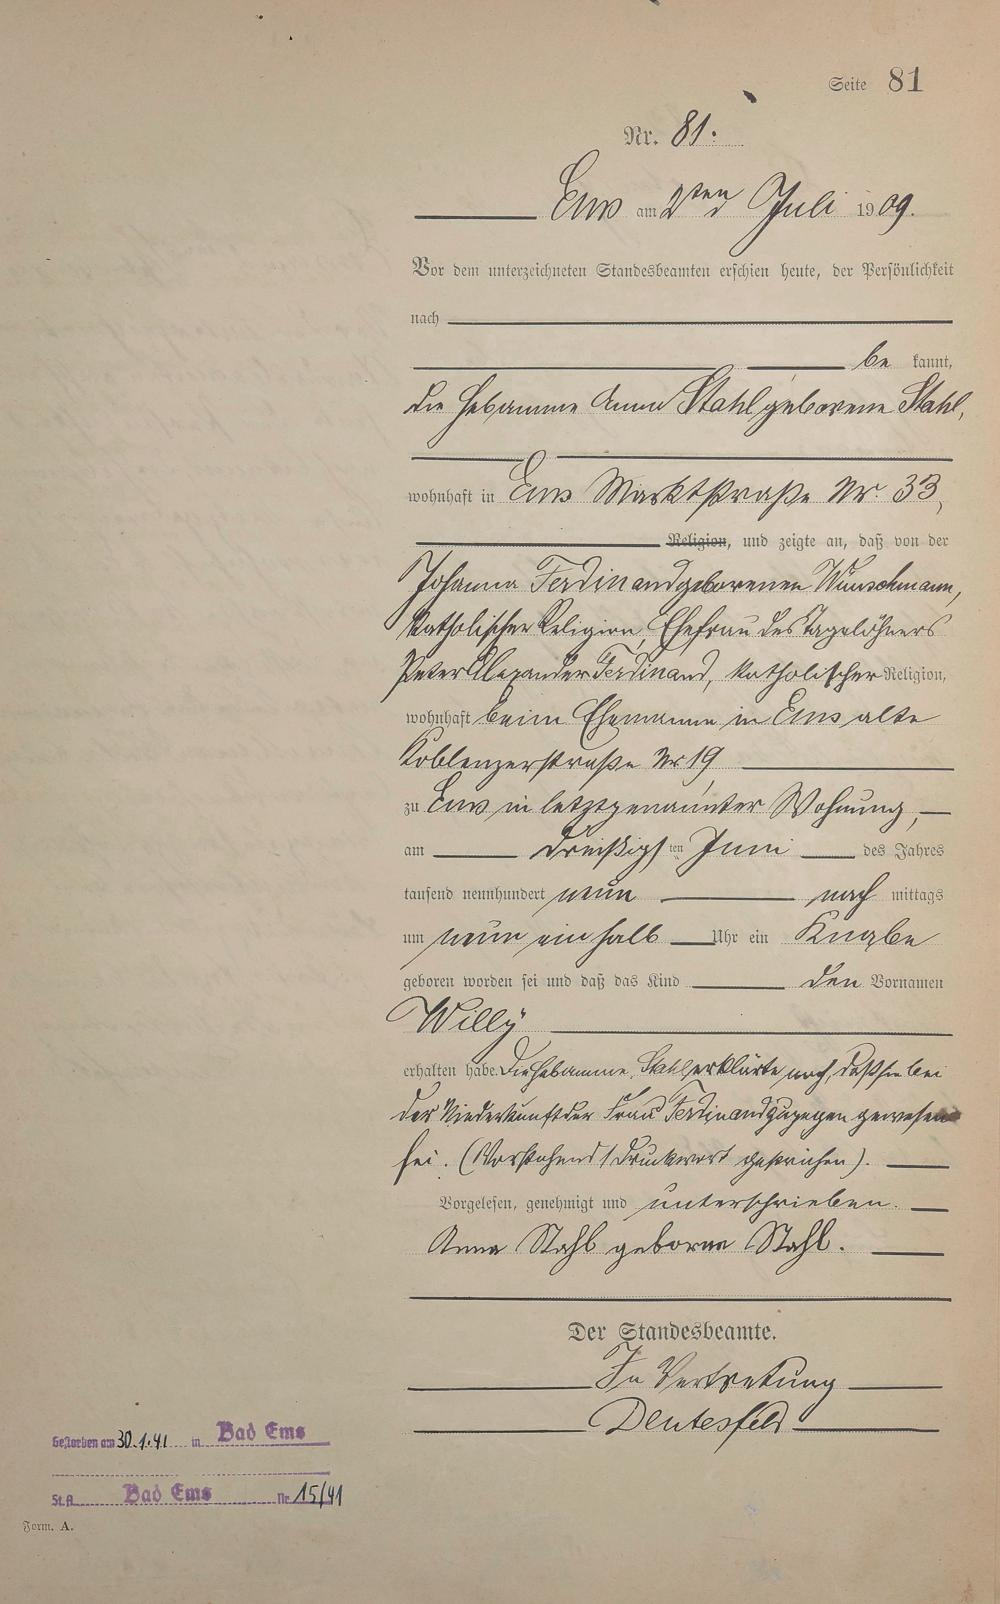 Seite 81
Nr. 81.
Ems am 2ten Juli 1909.
Vor dem unterzeichneten Standesbeamten erschien heute, der Persönlichkeit
nach
be kannt,
die Hebamme Anna Stahl geborene Stahl,
wohnhaft in Ems Marktstraße Nr. 33,
Religion, und zeigte an, daß von der
Johanna Ferdinand geborenen Wunschmann,
katholischer Religion, Ehefrau des Tagelöhners
Peter Alexander Ferdinand, katholischer Religion,
wohnhaft beim Ehemanne in Ems alte
Koblenzerstraße Nr 19
zu Ems in letztgenannter Wohnung,
am dreißigsten Juni des Jahres
tausend neunhundert neun nach mittags
um neun ein halb Uhr ein Knabe
geboren worden sei und daß das Kind den Vornamen
Willy
erhalten habe. Die Hebamme Stahl erklärte noch, daß sie bei
der Niederkunft der Frau Ferdinand zugegen gewesen
sei. (Vorstehend 1 Druckwort gestrichen).
Vorgelesen, genehmigt und unterschrieben.
Anna Stahl geborne Stahl.
Der Standesbeamte.
In Vertretung
Gestorben am 30.1.41 in Bad Ems
St.A. Bad Ems Nr. 15/41
Form. A.